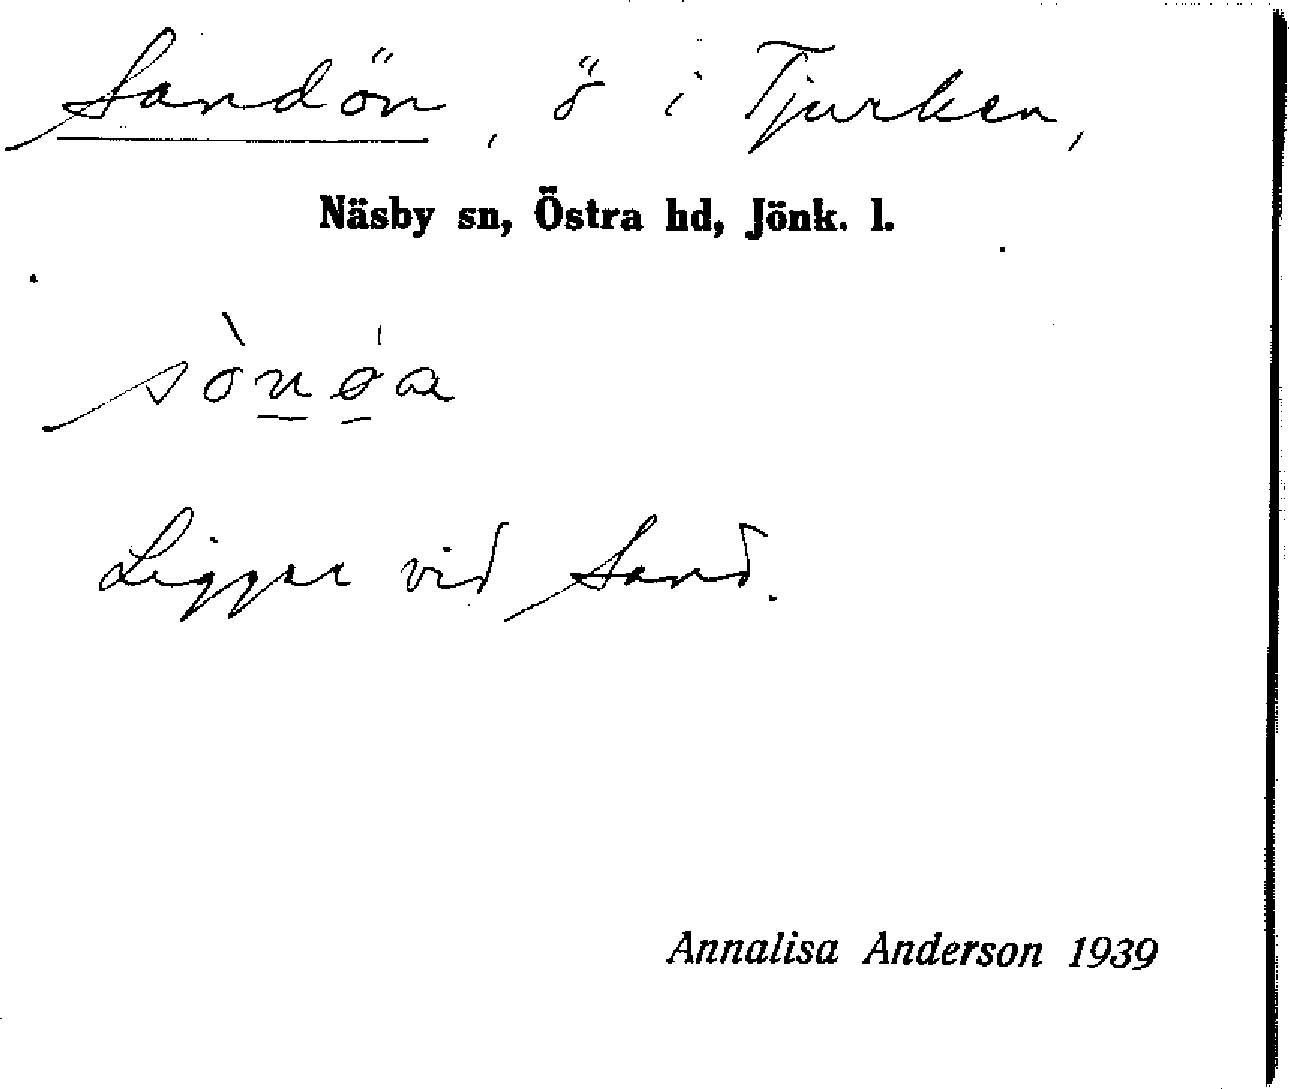 Sandön, ö i Tjurken,
Näsby sn, Östra hd, Jönk. l.
Ligger vid Sand.
Annalisa Anderson 1939